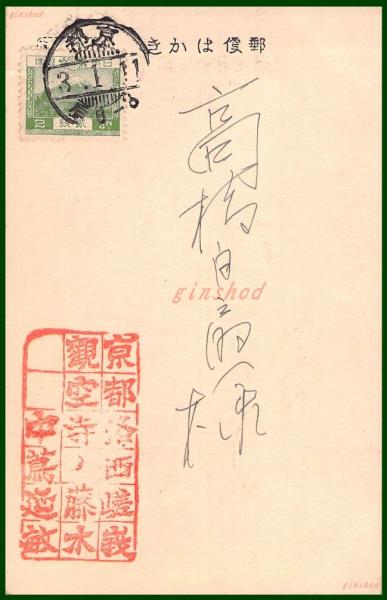 ginshod
郵便はかき
京都
3.1.11
2 貳錢
高橋
様
ginshod
京都洛西嵯峩
觀空寺ノ藤木
中蔦延敏
ginshod